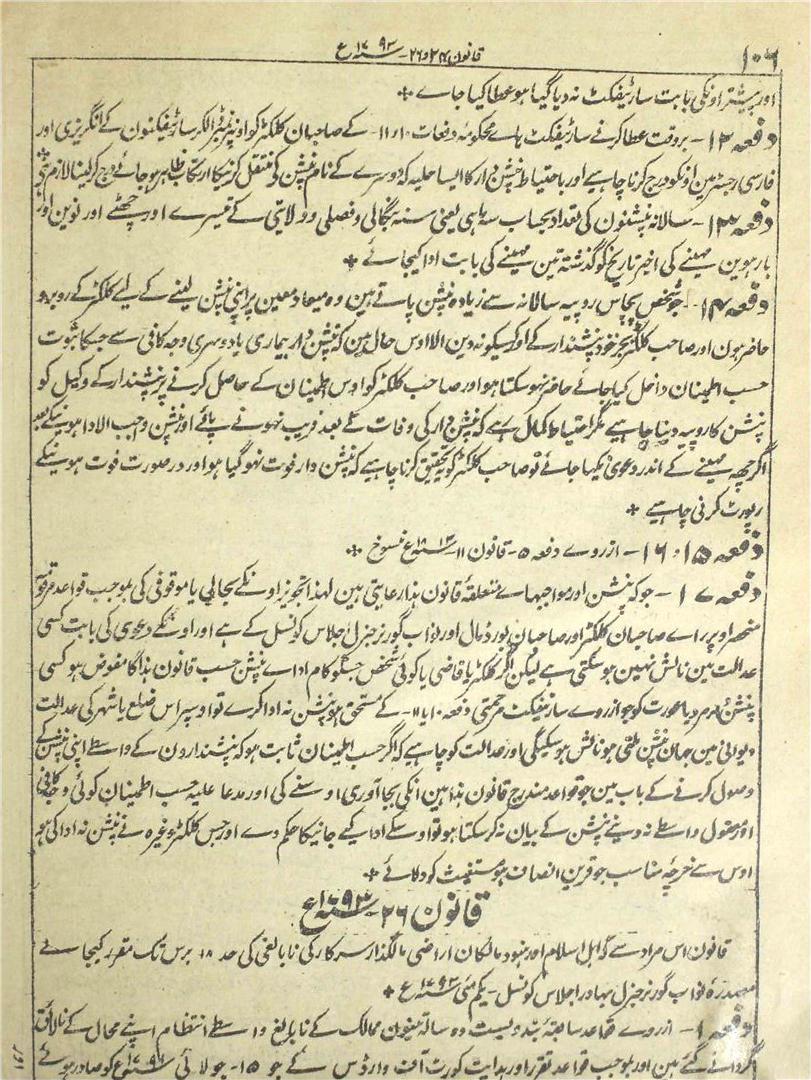 ۱۰۶
قانون ۲۴ و ۲۶ - سنہ ۱۷۹۳ ع
اور پیشتر اونکی بابت سارٹیفکٹ نہ دیا گیا ہو عطا کیا جاے *
دفعہ ۱۲ - بروقت عطا کرنے سارٹیفکٹ ہاے محکومہ دفعات ۱۰ و ۱۱ - کے صاحبان کلکٹر کو اونپر نمبر ڈالکر سارٹیفکٹون کے انگریزی اور
فارسی رجسٹر مین اونکو درج کرنا چاہیے اور باحتیاط پنشن دار کا ایسا حلیہ کہ دوسرے کے نام پنشن کو منتقل کرنیکا ارتکاب ظاہر ہو جائے درج کر لینا لازم ہے *
دفعہ ۱۳ - سالانہ پنشنون کی تعداد بحساب سہ ماہی یعنی سنہ بنگالی و فصلی و ولایتی کے تیسرے اور چھٹے اور نوین اور
بارہوین مہینے کی اخیر تاریخ کو گذشتہ تین مہینے کی بابت ادا کیجائے *
دفعہ ۱۴ - جو شخص پچاس روپیہ سالانہ سے زیادہ پنشن پاتے ہین وہ میعاد معین پر اپنی پنشن لینے کے لیے کلکٹر کے روبرو
حاضر ہون اور صاحب کلکٹر بجز خود پنشندار کے اور کسیکو نہ دین الا اوس حال مین کہ پنشن دار بیماری یا دوسری وجہ کافی سے جسکا ثبوت
حسب اطمینان داخل کیا جائے حاضر نہو سکتا ہو اور صاحب کلکٹر کو اوس اطمینان کے حاصل کرنے پر پنشندار کے وکیل کو
پنشن کا روپیہ دینا چاہیے مگر احتیاط کمال رہے کہ پنشن دار کی وفات کے بعد فریب نہونے پائے اور پنشن واجب الادا ہونیکے بعد
اگر چھہ مہینے کے اندر دعوی نکیا جائے تو صاحب کلکٹر کو یہ تحقیق کرنا چاہیے کہ پنشن دار فوت نہو گیا ہو اور در صورت فوت ہونیکے
رپورٹ کرنی چاہیے *
دفعہ ۱۵ و ۱۶ - ازروے دفعہ ۵ - قانون ۱۱ سنہ ۱۸۱۳ ع منسوخ *
دفعہ ۱۷ - جو کہ پنشن اور مواجبہاے متعلقہ قانون ہذا رعایتی ہین لہذا تجویز اونکے بحالی یا موقوفی کی بموجب قواعد مرقومہ
منحصر اوپر راے صاحبان کلکٹر اور صاحبان بورڈ مال اور نواب گورنر جنرل اجلاس کونسل کے ہے اور اونکے دعوی کی بابت کسی
عدالت مین نالش نہین ہو سکتی ہے لیکن اگر کلکٹر یا قاضی یا کوئی شخص جسکو کام اداے پنشن حسب قانون ہذا کا مفوض ہو کسی
پنشن مرد یا عورت کو جو ازروے سارٹیفکٹ مرحمتی دفعہ ۱۰ یا ۱۱ - کے مستحق ہو پنشن نہ ادا کرے تو اوسپر اس ضلع یا شہر کی عدالت
دیوانی مین جہان پنشن ملتی ہو نالش ہو سکیگی اور عدالت کو چاہیے کہ اگر حسب اطمینان ثابت ہو کہ پنشندارون کے واسطے اپنی پنشن کے
وصول کرنے کے باب مین جو قواعد مندرج قانون ہذا ہین انکی بجا آوری اوسنے کی اور مدعا علیہ حسب اطمینان کوئی وجہ کافی
اور معقول واسطے نہ دینے پنشن کے بیان نہ کر سکتا ہو تو اوسکے ادا کیے جانیکا حکم دے اور جس کلکٹر وغیرہ نے پنشن نہ ادا کی ہو
اوس سے خرچہ مناسب جو قرین انصاف ہو مستغیث کو دلائے *
قانون ۲۶ - سنہ ۱۷۹۳ ع
قانون اس مراد سے کہ اہل اسلام اور ہنود مالکان اراضی مالگذار سرکار کی نابالغی کی حد ۱۸ برس تک مقرر کیجاے
مصدرہ نواب گورنر جنرل بہادر اجلاس کونسل - یکم مئی سنہ ۱۷۹۳ ع *
دفعہ ۱ - ازروے قواعد سابقہ بندوبست دہ سالہ تینون ممالک کے نابالغ واسطے انتظام اپنے محال کے نالائق
گردانے گئے ہین اور بموجب قواعد تقرر اور ہدایت کورٹ آف وارڈس کے جو ۱۵ - جولائی سنہ ۱۷۹۱ ع کو صادر ہوئے